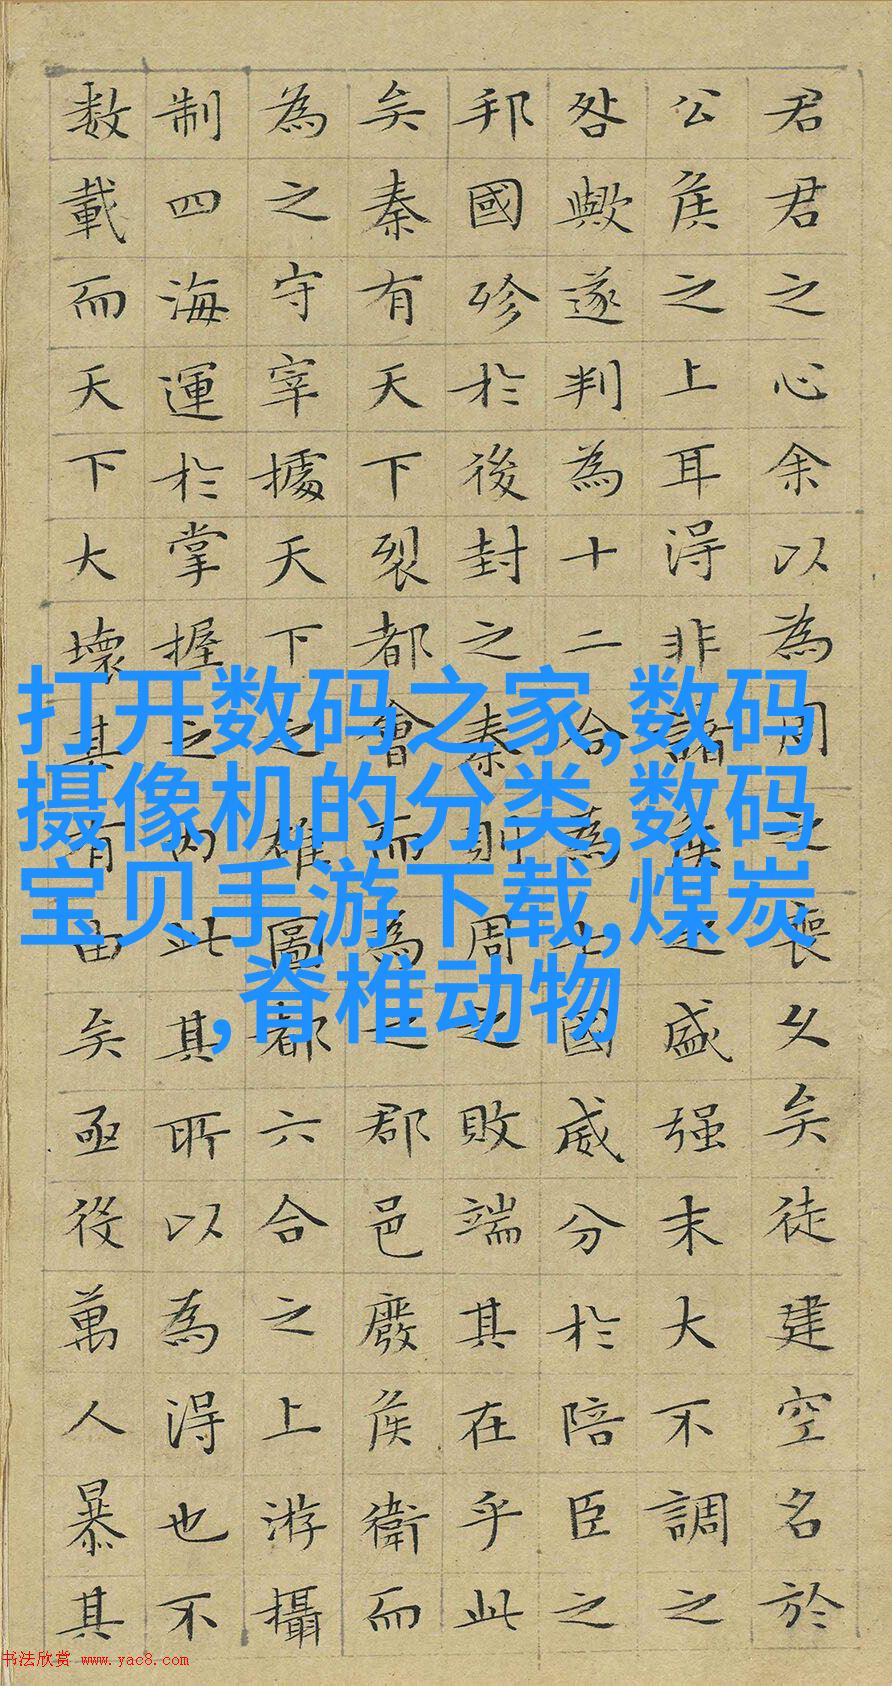 君君之心余以為周之喪久矣徒建空名於
公侯之上耳得非諸侯之盛强末大不調之
咎歟遂判為十二合為七國威分於陪臣之
邦國殄於後封之秦則周之敗端其在乎此
矣秦有天下裂都會而為之郡邑廢侯衛而
為之守宰據天下之雄圖都六合之上游攝
制四海運於掌握之内此其所以為得也不
数載而天下大壞其有由矣亟役萬人暴其
打开数码之家,数码
摄像机的分类,数码
宝贝手游下载,煤炭
,脊椎动物
书法欣赏 www.yac8.com